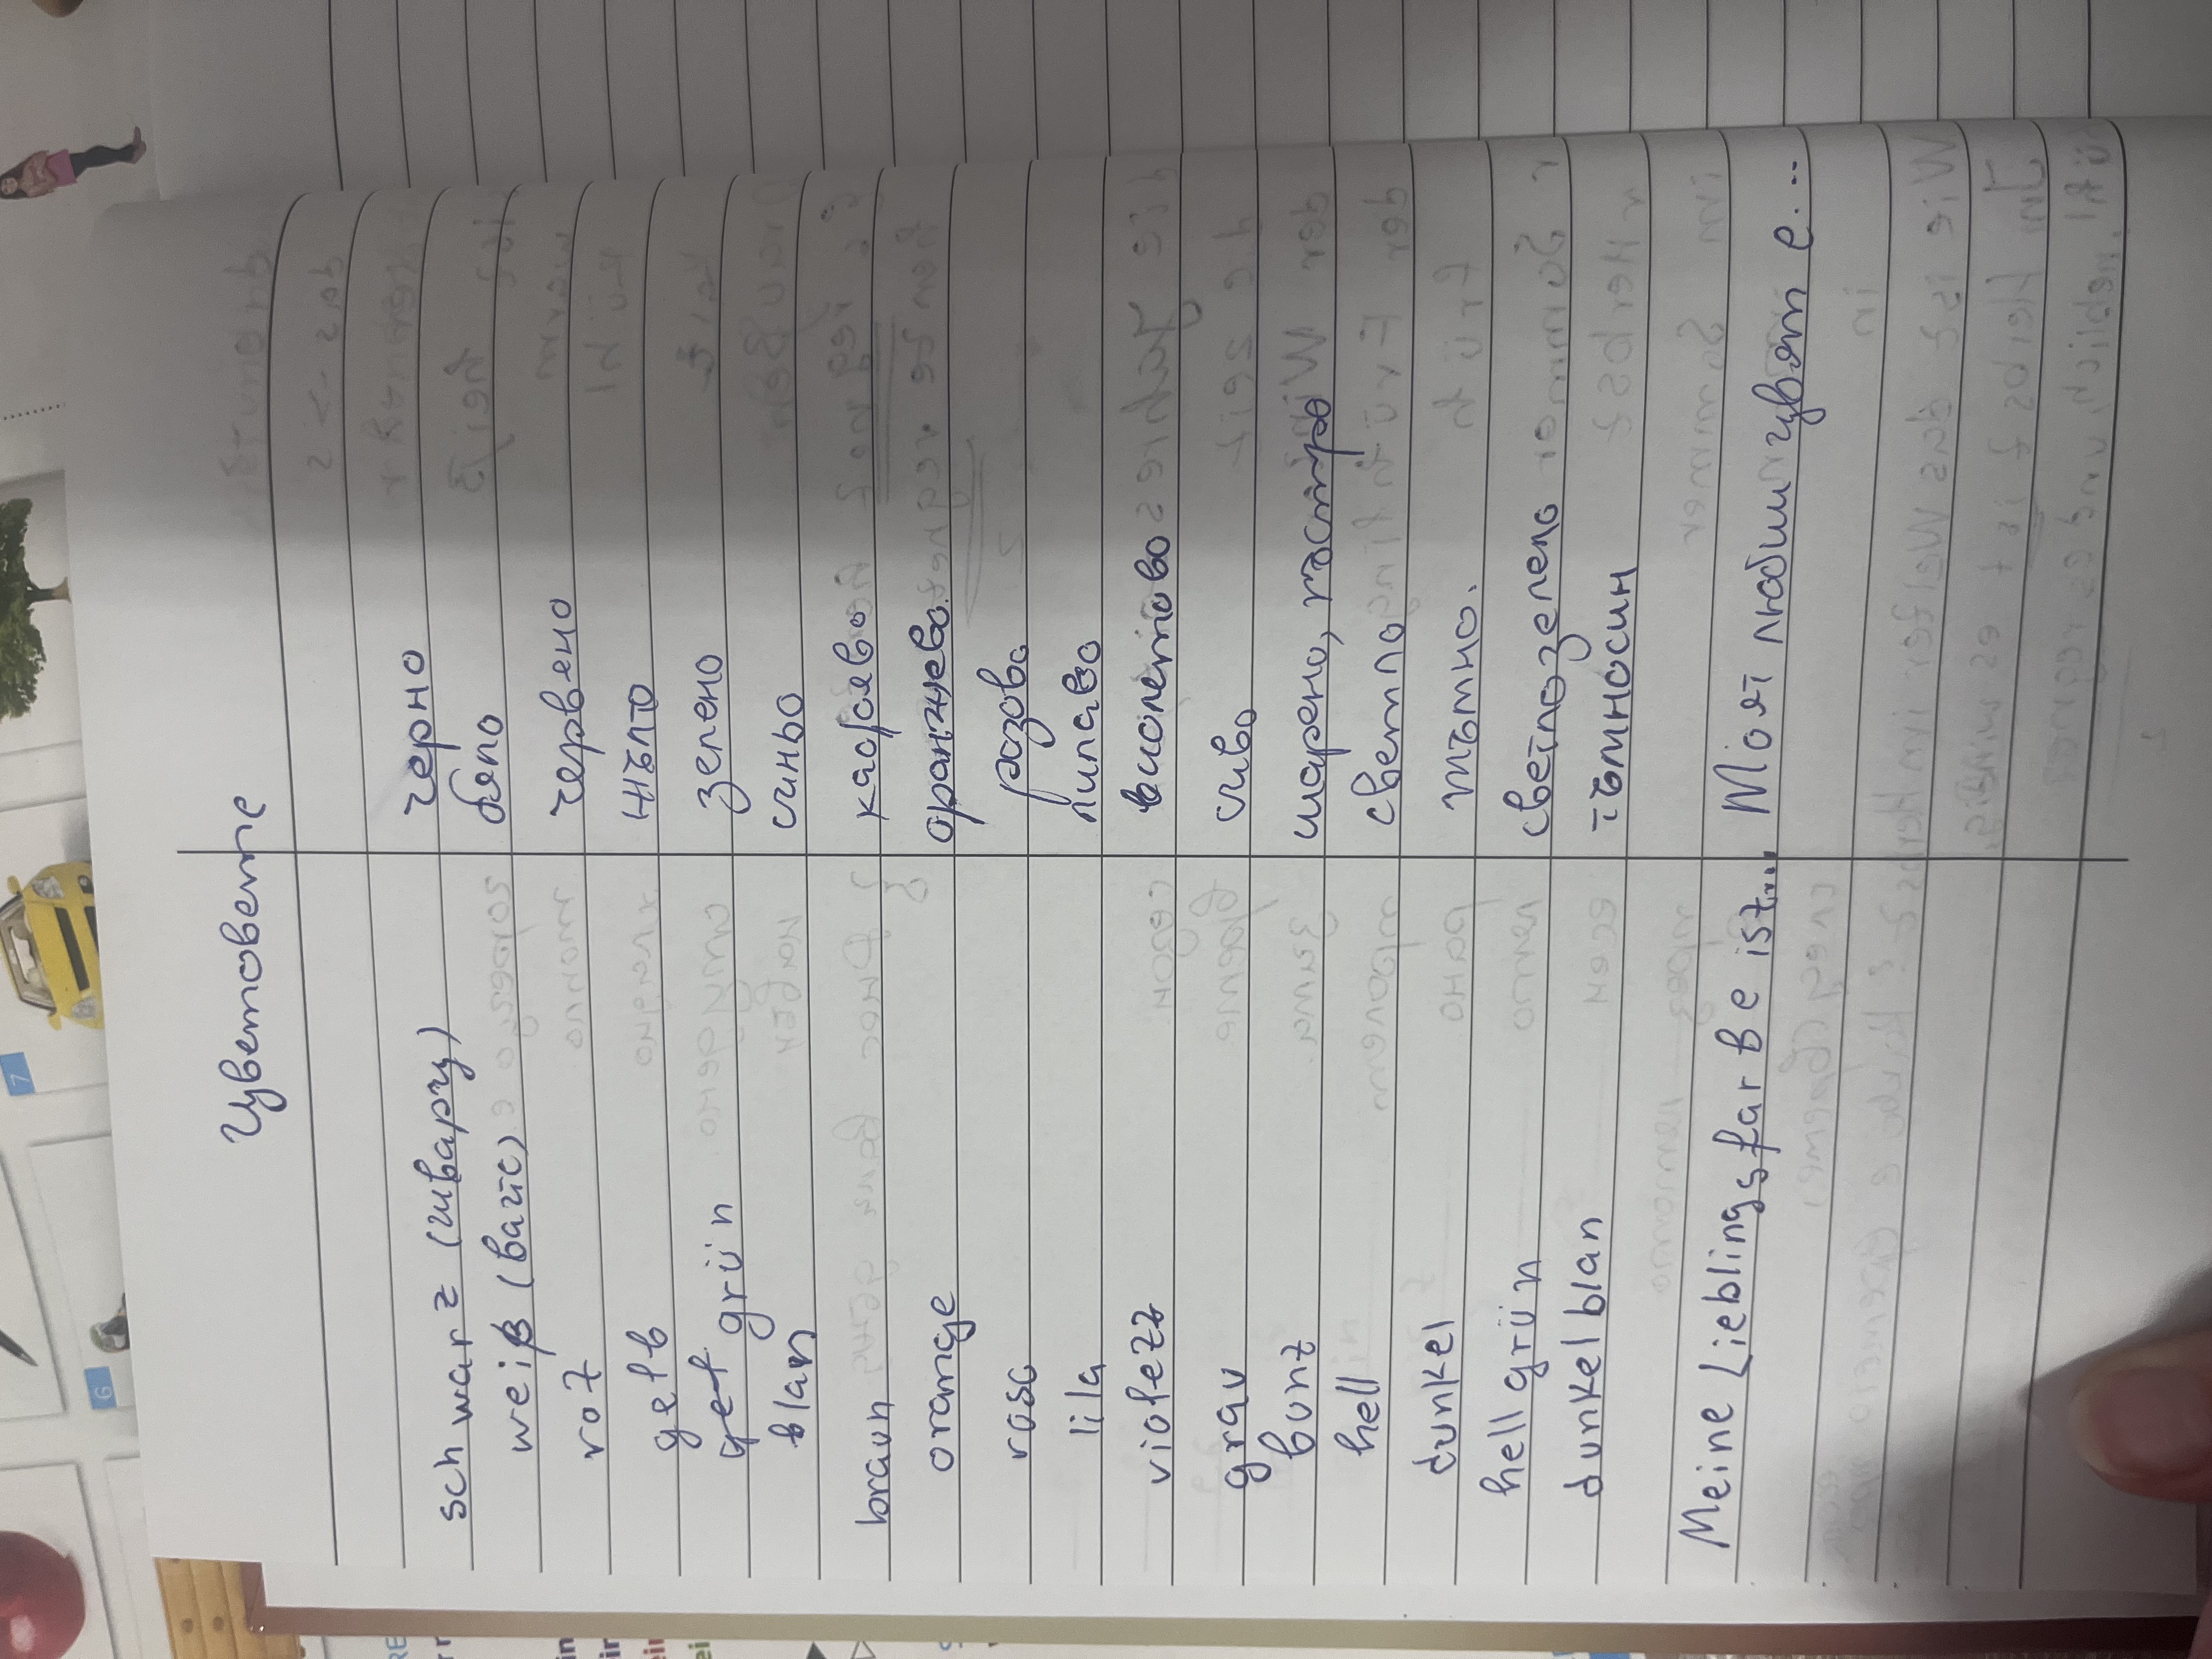 Цветовете
schwarz (шварц) черно
weiß (вайс) бяло
rot червено
gelb жълто
grün зелено
blau синьо
braun кафяво
orange оранжево
rosa розово
lila лилаво
violett виолетово
grau сиво
bunt шарено, пъстро
hell светло
dunkel тъмно.
hellgrün светлозелено
dunkelblau тъмносин
Meine Lieblingsfarbe ist... Моят любим цвят е...
7
6